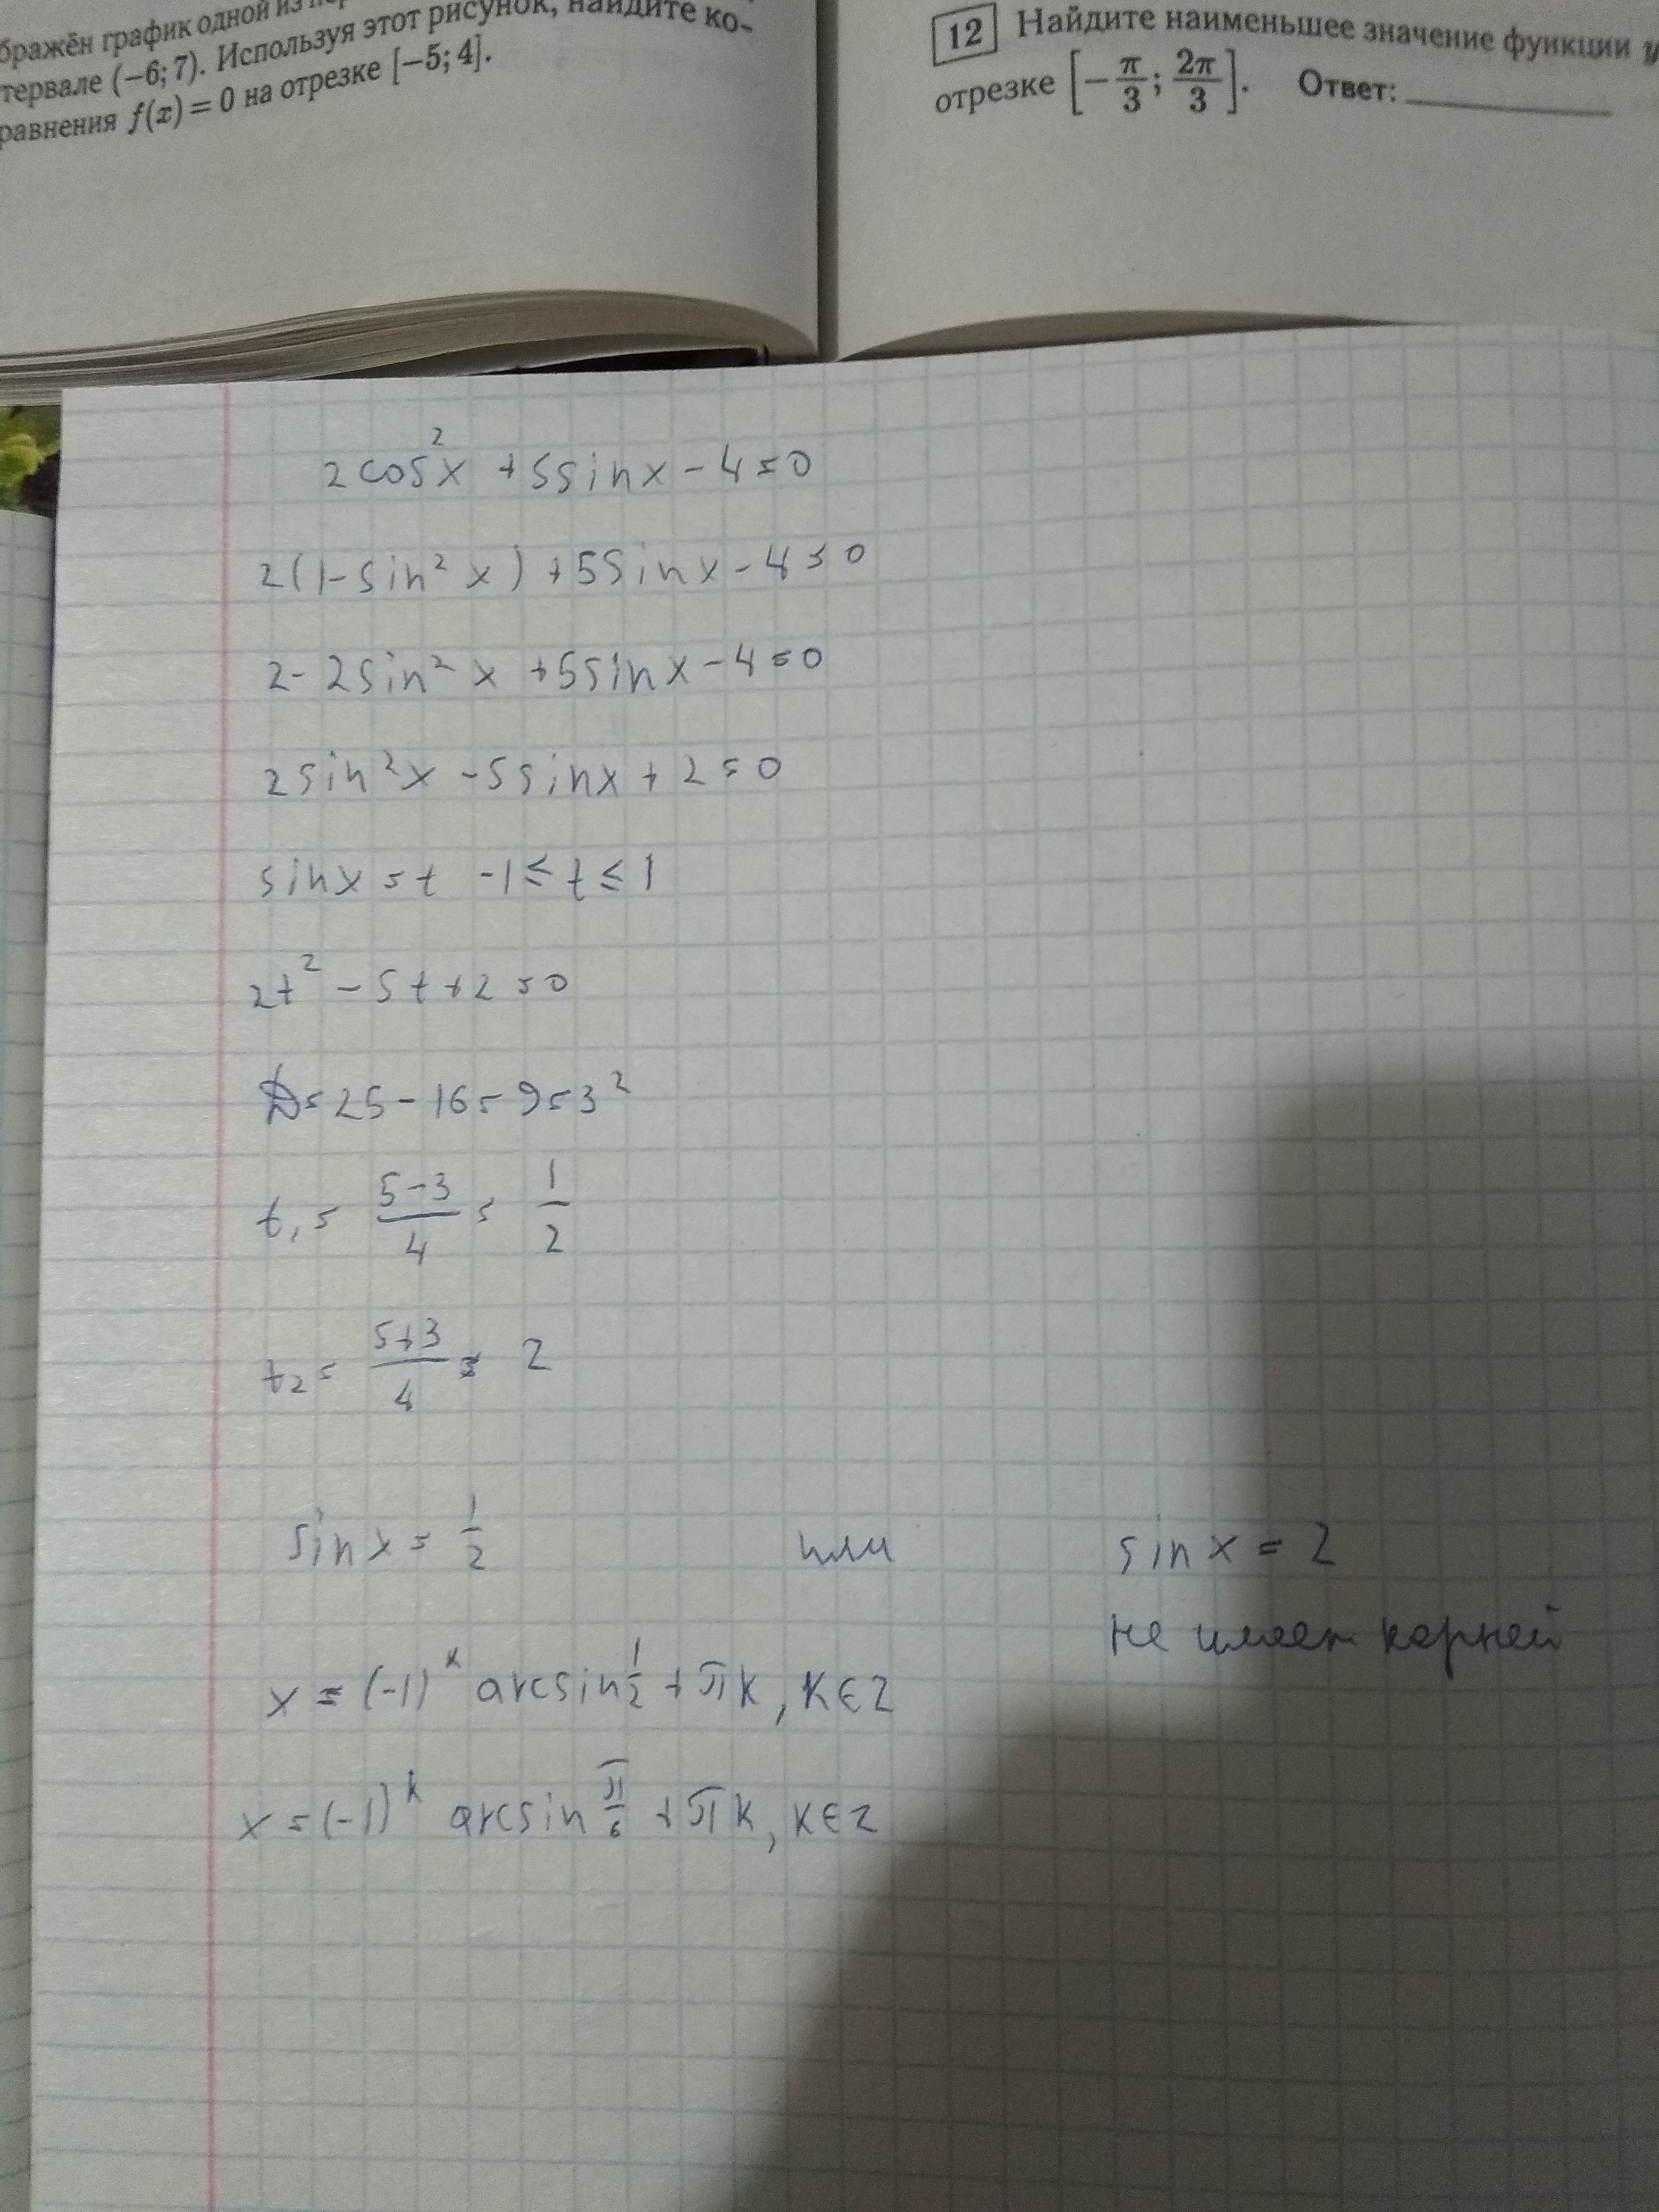 бражён график одной из
тервале (−6; 7). Используя этот рисунок, найдите ко-
равнения f(x) = 0 на отрезке [−5; 4].
12 Найдите наименьшее значение функции y
отрезке [−π/3; 2π/3]. Ответ:
2cos²x + 5sinx − 4 = 0
2(1−sin²x) + 5sinx − 4 = 0
2 − 2sin²x + 5sinx − 4 = 0
2sin²x − 5sinx + 2 = 0
sinx = t −1 ≤ t ≤ 1
2t² − 5t + 2 = 0
D = 25 − 16 = 9 = 3²
t₁ = (5−3)/4 = 1/2
t₂ = (5+3)/4 = 2
sinx = 1/2 или sinx = 2
не имеет корней
x = (−1)^k arcsin 1/2 + πk, k∈Z
x = (−1)^k arcsin π/6 + πk, k∈Z